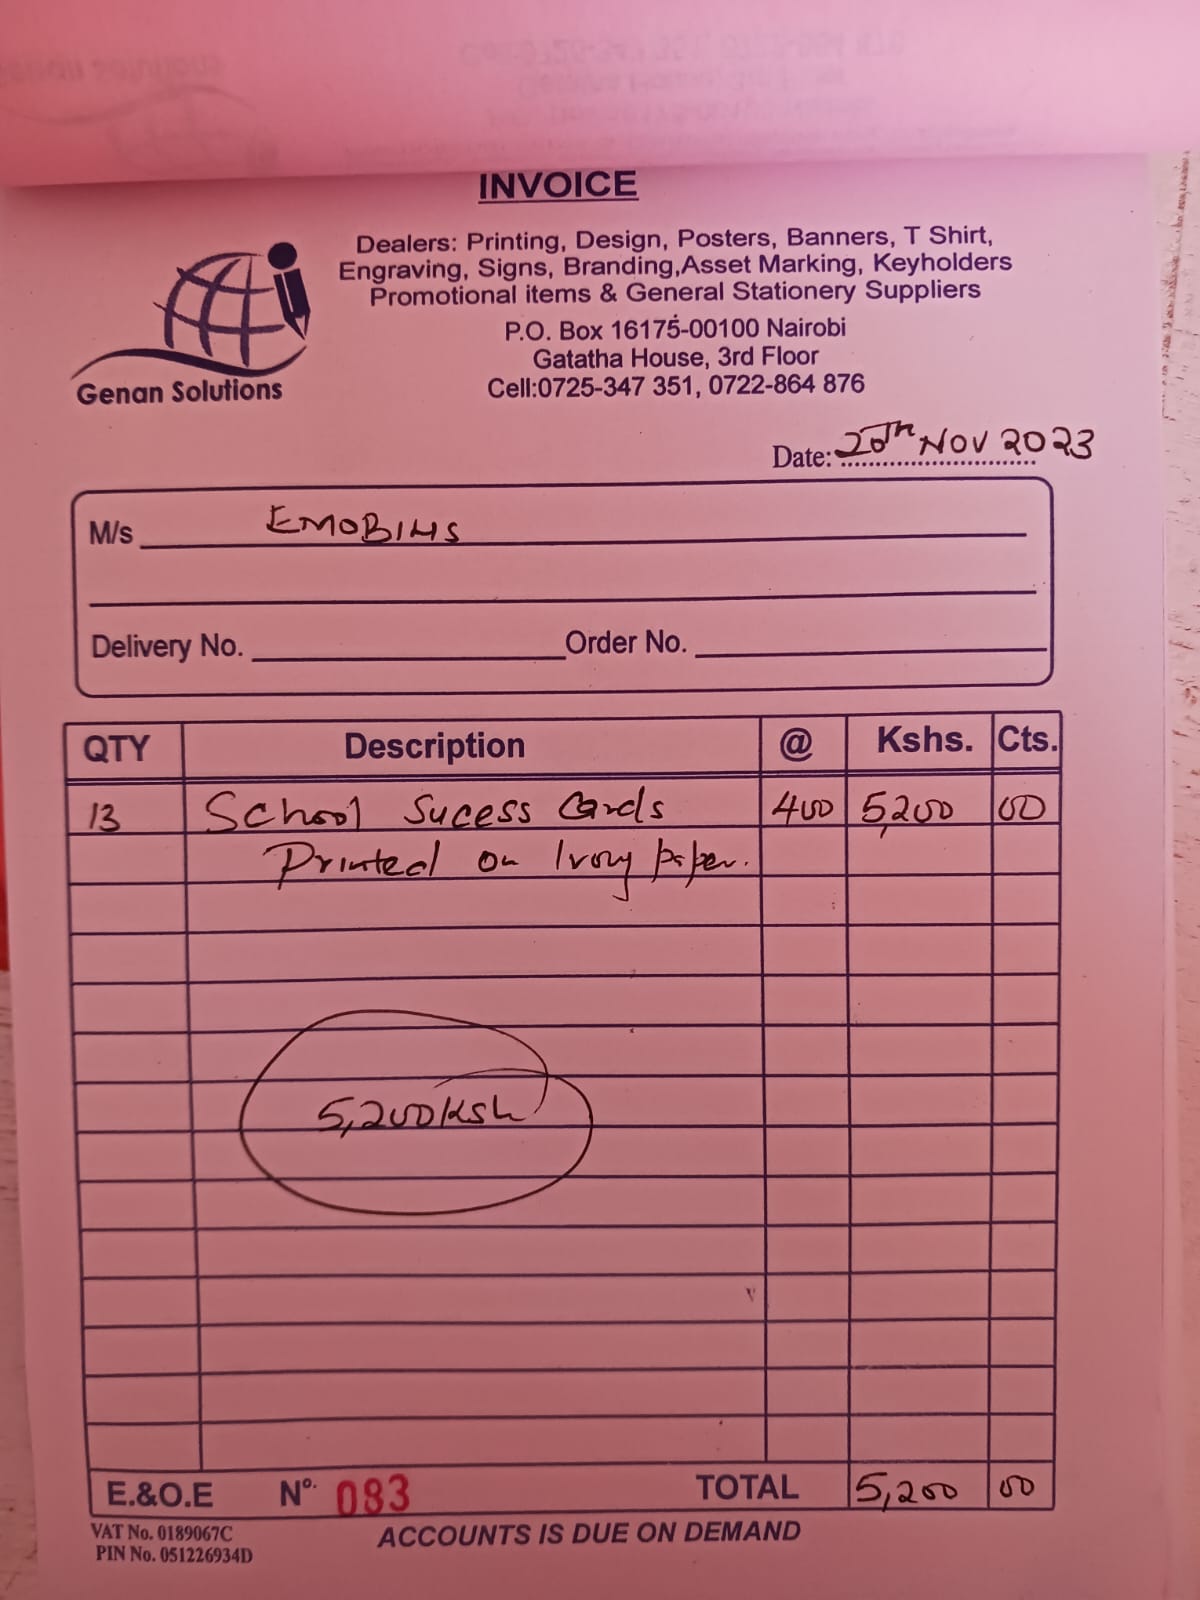 INVOICE
Dealers: Printing, Design, Posters, Banners, T Shirt,
Engraving, Signs, Branding,Asset Marking, Keyholders
Promotional items & General Stationery Suppliers
P.O. Box 16175-00100 Nairobi
Gatatha House, 3rd Floor
Cell:0725-347 351, 0722-864 876
Genan Solutions
Date: 20th NOV 2023
M/s EMOBIHS
Delivery No. Order No.
QTY Description @ Kshs. Cts.
13 School Sucess Cards 400 5,200 00
Printed on Ivory paper.
5,200 Ksh
E.&O.E Nº. 083 TOTAL 5,200 00
VAT No. 0189067C
PIN No. 051226934D
ACCOUNTS IS DUE ON DEMAND